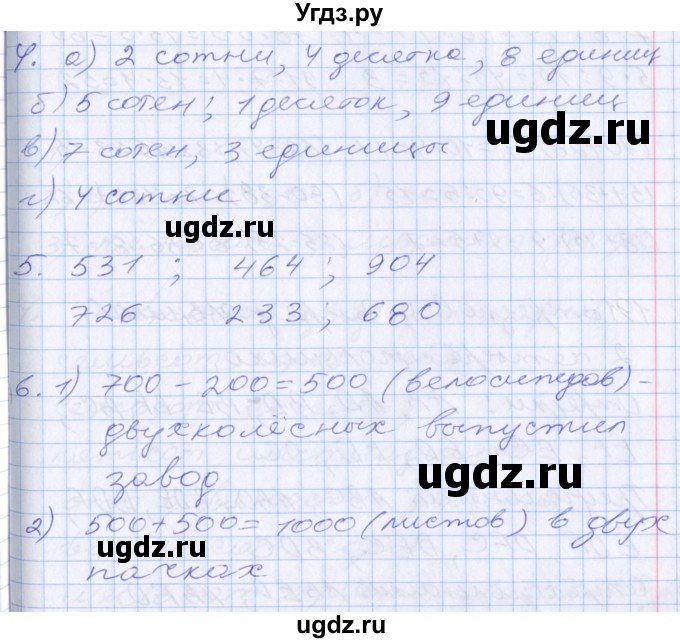 Угдз.ру
4. а) 2 сотни, 4 десятка, 8 единиц
б) 5 сотен; 1 десяток, 9 единиц
ugdz.ru
в) 7 сотен, 3 единицы
г) 4 сотни
ugdz.ru
5. 531 ; 464 ; 904
726 233 ; 680
6. 1) 700 - 200 = 500 (велосипедов) -
двухколёсных выпустил
завод
ugdz.ru
2) 500 + 500 = 1000 (листов) в двух
ugdz.ru
пачках
ugdz.ru